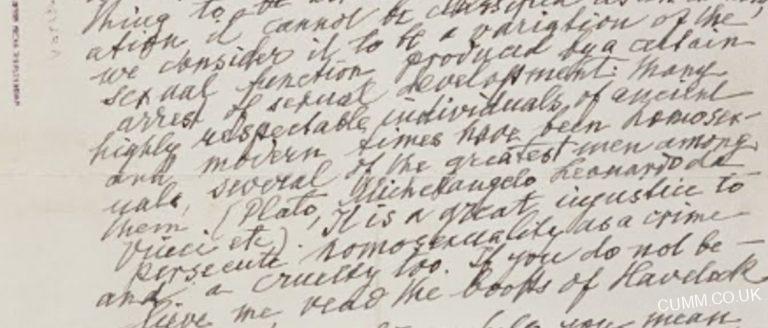 thing to be
ation it cannot be classified as
we consider it to be a variation of the
sexual function produced by a certain
arrest of sexual development. Many
highly respectable individuals of ancient
and modern times have been homosex-
uals, several of the greatest men among
them (Plato, Michelangelo, Leonardo da
Vinci etc). It is a great injustice to
persecute homosexuality as a crime
and a cruelty too. If you do not be-
lieve me read the books of Havelock
you mean
CUMM.CO.UK